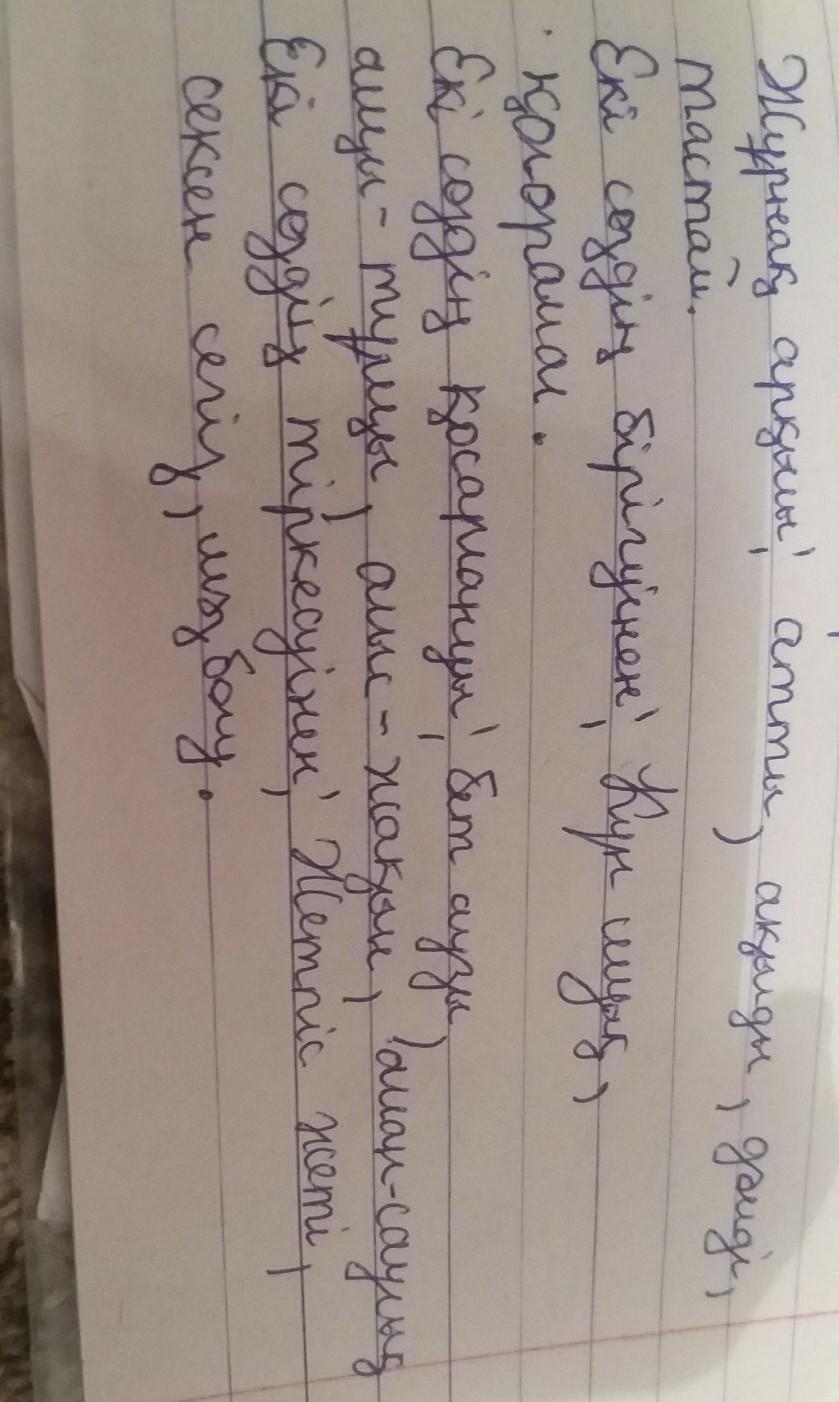 Жұрнақ арқылы: атты, ақылды, дәмді,
тастай.
Екі сөздің бірігуінен: Күн шуақ,
қолорамал.
Екі сөздің қосарлануы: бет аузы,
ащы-тұщы, алыс-жақын, аман-саулық
Екі сөздің тіркесуінен: Жетпіс жеті,
сексен сегіз, мәз болу.